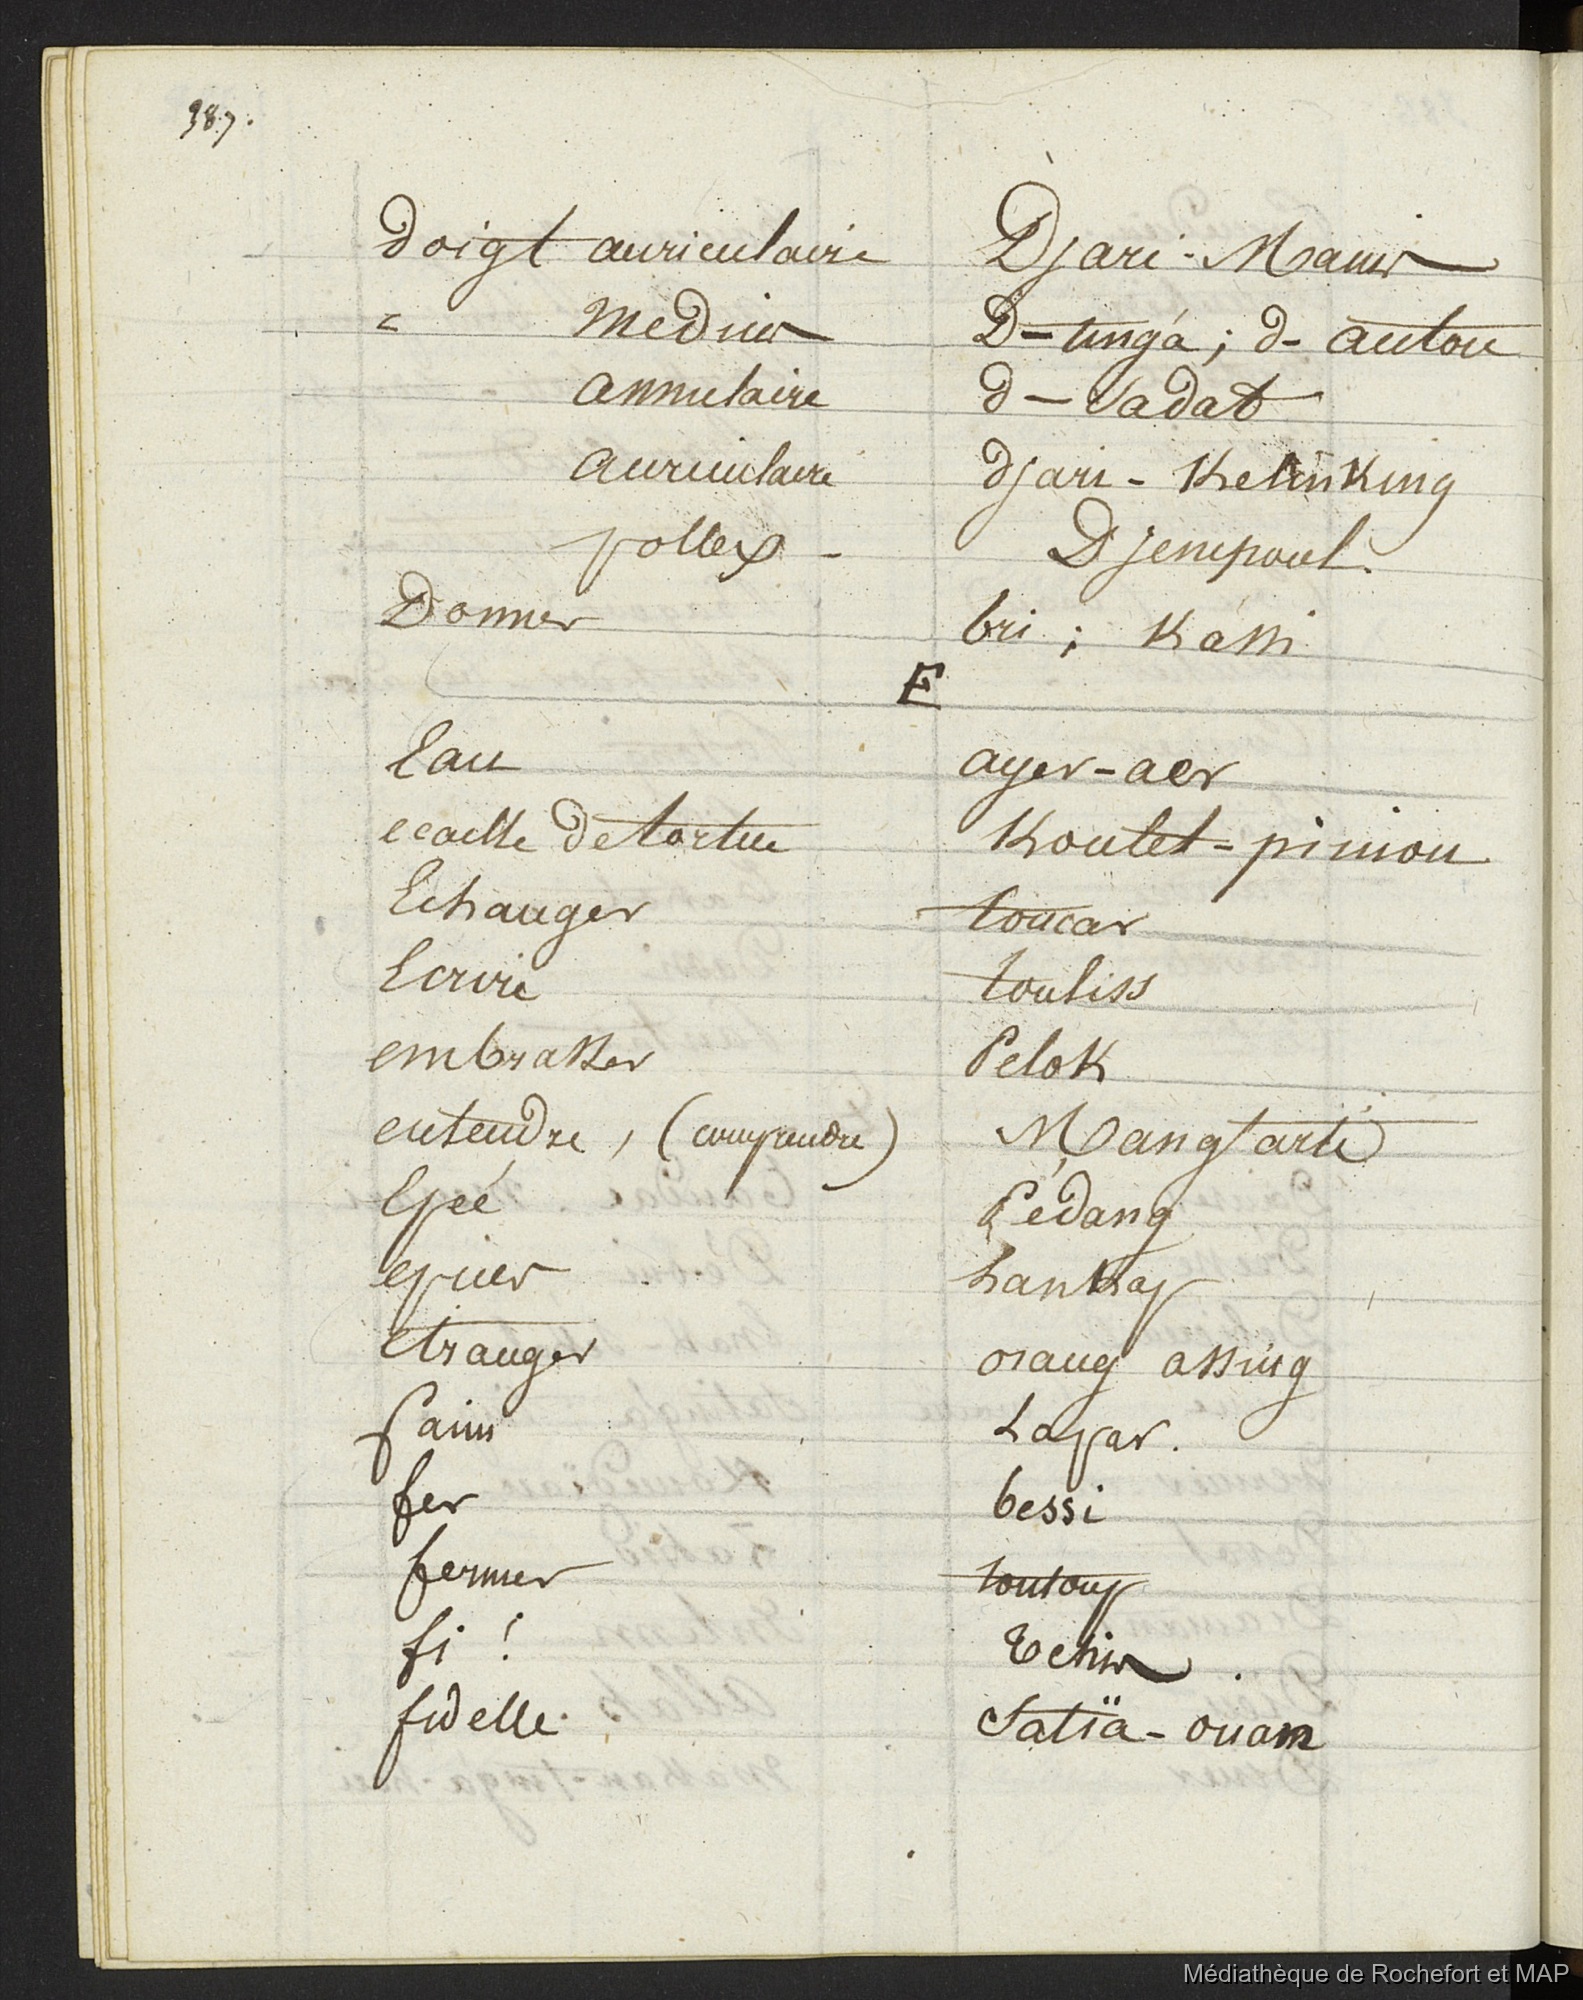 387.
Doigt auriculaire Djari-Manis
" Medius D-tinga; d- autou
annulaire d-Vadat
auriculaire djari-Kelinking
pollex - Djempoul.
Donner bri; Kassi
E
Eau ayer-aer
ecaille de tortue Koulet-piniou
Echanger toucar
Ecrire touliss
embrasser Pelok
entendre, (comprendre) Mangtarté
Epeé Pédang
epier hankap
etranger orang assing
faim Lapar.
fer bessi
fermer toutoup
fi !
fidelle. Satïa-ouam
Médiathèque de Rochefort et MAP